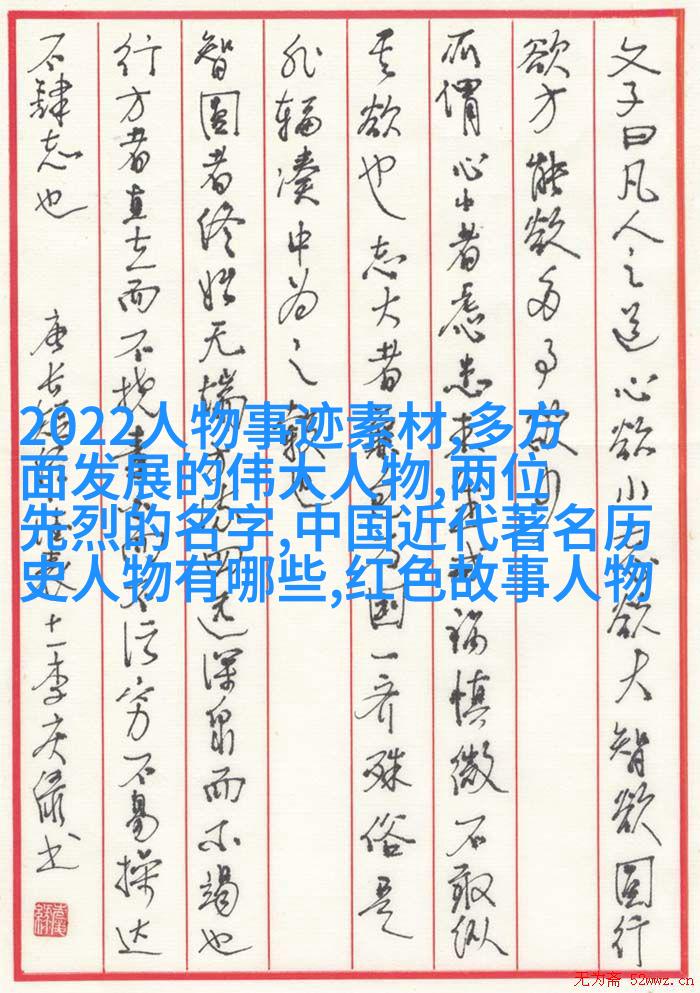 文子曰凡人之道心欲小志欲大智欲圆行
欲方能欲多事欲
所谓心小者虑患未 祸慎微不敢纵
其欲也志大者兼包万国一齐殊俗是
非辐凑中为之毂也
智圆者终始无端方流四远深泉而不竭也
行方者直立而不挠素白而不污穷不易操达
不肆志也
唐长 十一李庆 书
2022人物事迹素材,多方
面发展的伟大人物,两位
先烈的名字,中国近代著名历
史人物有哪些,红色故事人物
无为斋 52wwz.cn